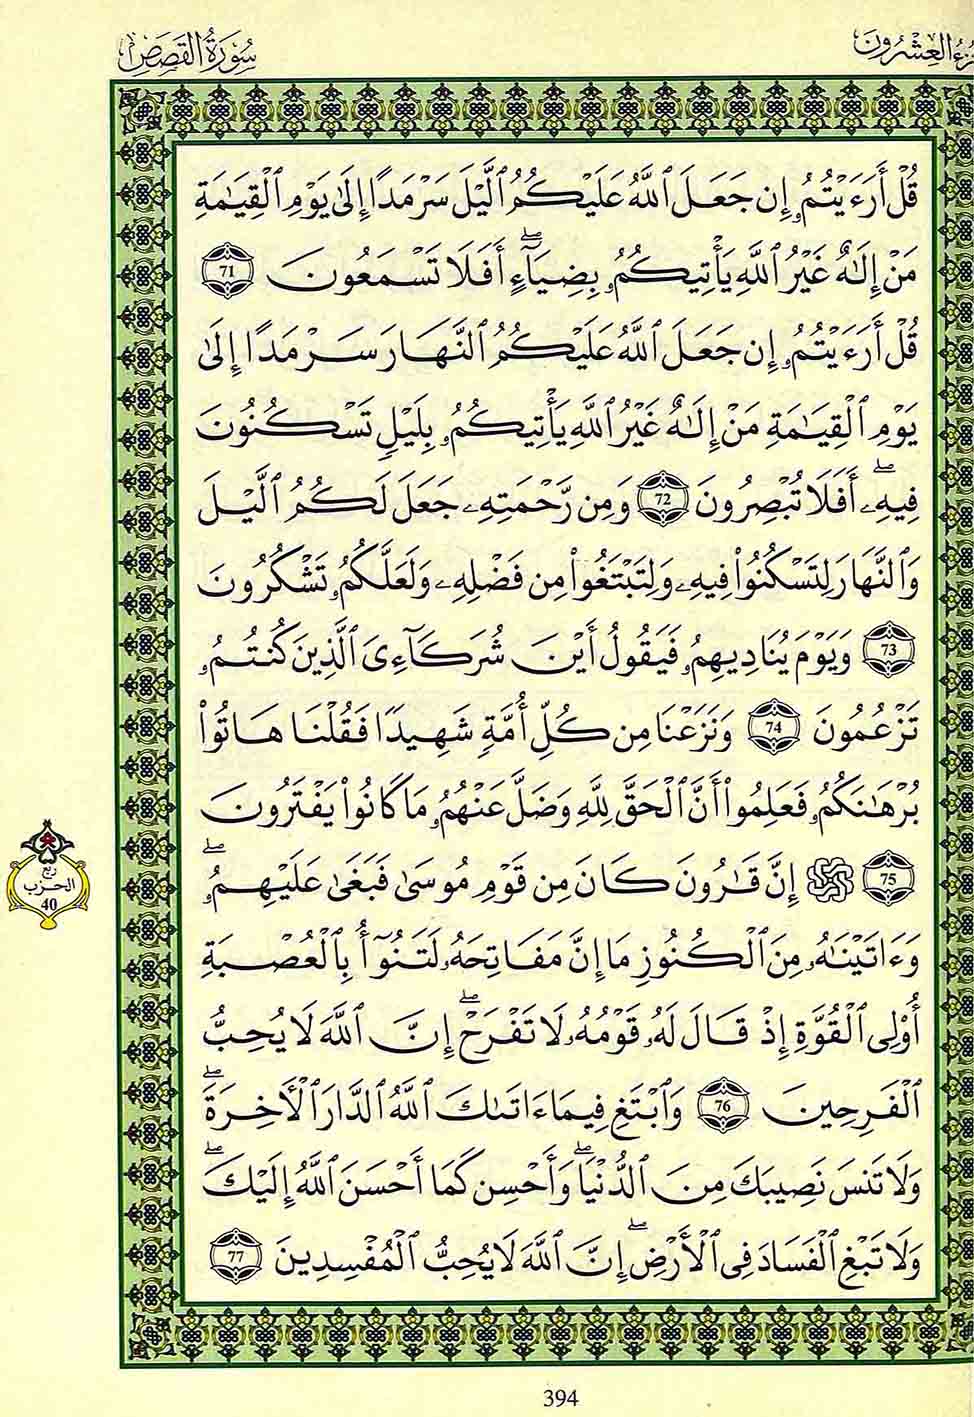 سُورَةُ القَصَصِ
العِشْرُونَ
قُلْ أَرَءَيْتُمُۥٓ إِن جَعَلَ ٱللَّهُ عَلَيْكُمُ ٱلَّيْلَ سَرْمَدًا إِلَىٰ يَوْمِ ٱلْقِيَٰمَةِ
مَنْ إِلَٰهٌ غَيْرُ ٱللَّهِ يَأْتِيكُمُۥ بِضِيَآءٍۖ أَفَلَا تَسْمَعُونَ 71
قُلْ أَرَءَيْتُمُۥٓ إِن جَعَلَ ٱللَّهُ عَلَيْكُمُ ٱلنَّهَارَ سَرْمَدًا إِلَىٰ
يَوْمِ ٱلْقِيَٰمَةِ مَنْ إِلَٰهٌ غَيْرُ ٱللَّهِ يَأْتِيكُمُۥ بِلَيْلٍ تَسْكُنُونَ
فِيهِۦۖ أَفَلَا تُبْصِرُونَ 72 وَمِن رَّحْمَتِهِۦ جَعَلَ لَكُمُ ٱلَّيْلَ
وَٱلنَّهَارَ لِتَسْكُنُوا۟ فِيهِۦ وَلِتَبْتَغُوا۟ مِن فَضْلِهِۦ وَلَعَلَّكُمُۥ تَشْكُرُونَ
73 وَيَوْمَ يُنَادِيهِمُۥ فَيَقُولُ أَيْنَ شُرَكَآءِىَ ٱلَّذِينَ كُنتُمُۥ
تَزْعُمُونَ 74 وَنَزَعْنَا مِن كُلِّ أُمَّةٍ شَهِيدًا فَقُلْنَا هَاتُوا۟
بُرْهَٰنَكُمُۥ فَعَلِمُوٓا۟ أَنَّ ٱلْحَقَّ لِلَّهِ وَضَلَّ عَنْهُمُۥ مَا كَانُوا۟ يَفْتَرُونَ
75 إِنَّ قَٰرُونَ كَانَ مِن قَوْمِ مُوسَىٰ فَبَغَىٰ عَلَيْهِمُۥۖ
وَءَاتَيْنَٰهُۥ مِنَ ٱلْكُنُوزِ مَآ إِنَّ مَفَاتِحَهُۥ لَتَنُوٓأُ بِٱلْعُصْبَةِ
أُو۟لِى ٱلْقُوَّةِ إِذْ قَالَ لَهُۥ قَوْمُهُۥ لَا تَفْرَحْۖ إِنَّ ٱللَّهَ لَا يُحِبُّ
ٱلْفَرِحِينَ 76 وَٱبْتَغِ فِيمَآ ءَاتَىٰكَ ٱللَّهُ ٱلدَّارَ ٱلْأَخِرَةَۖ
وَلَا تَنسَ نَصِيبَكَ مِنَ ٱلدُّنْيَاۖ وَأَحْسِن كَمَآ أَحْسَنَ ٱللَّهُ إِلَيْكَۖ
وَلَا تَبْغِ ٱلْفَسَادَ فِى ٱلْأَرْضِۖ إِنَّ ٱللَّهَ لَا يُحِبُّ ٱلْمُفْسِدِينَ 77
ربع
الحزب
40
394